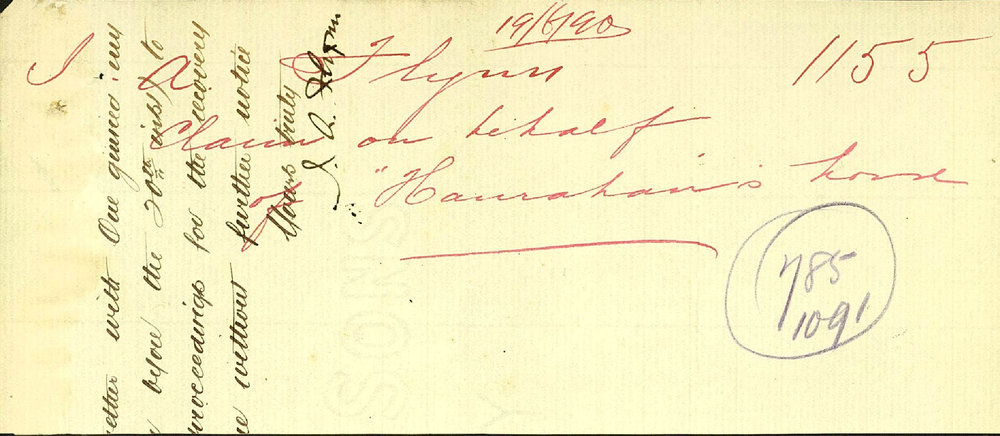 19/6/90
J A Flynn 1155
Claim on behalf
of "Hanrahan's house
785
1091
with One guinea my
by you the 20th inst, to
proceedings for the recovery
without further notice
Yours truly
J. A. Flynn